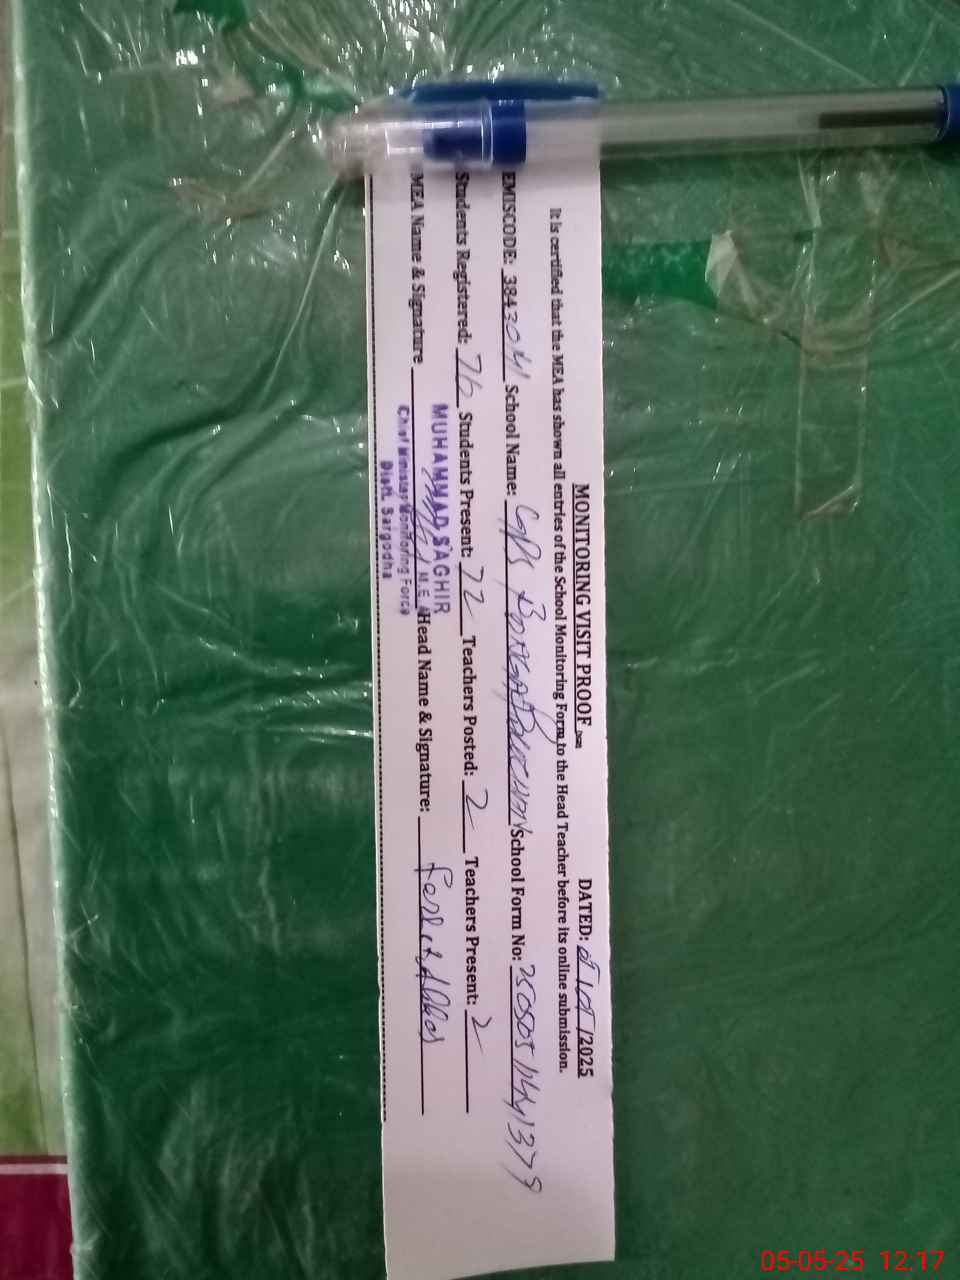 MONITORING VISIT PROOF DATED: 05/05/2025
It is certified that the MEA has shown all entries of the School Monitoring Form to the Head Teacher before its online submission.
EMISCODE: School Name: GPS School Form No:
Students Registered: 76 Students Present: 72 Teachers Posted: 2 Teachers Present: 2
MEA Name & Signature Head Name & Signature:
MUHAMMAD SAGHIR
M.E.A
Chief Minister Monitoring Force
Distt. Sargodha
05-05-25 12:17